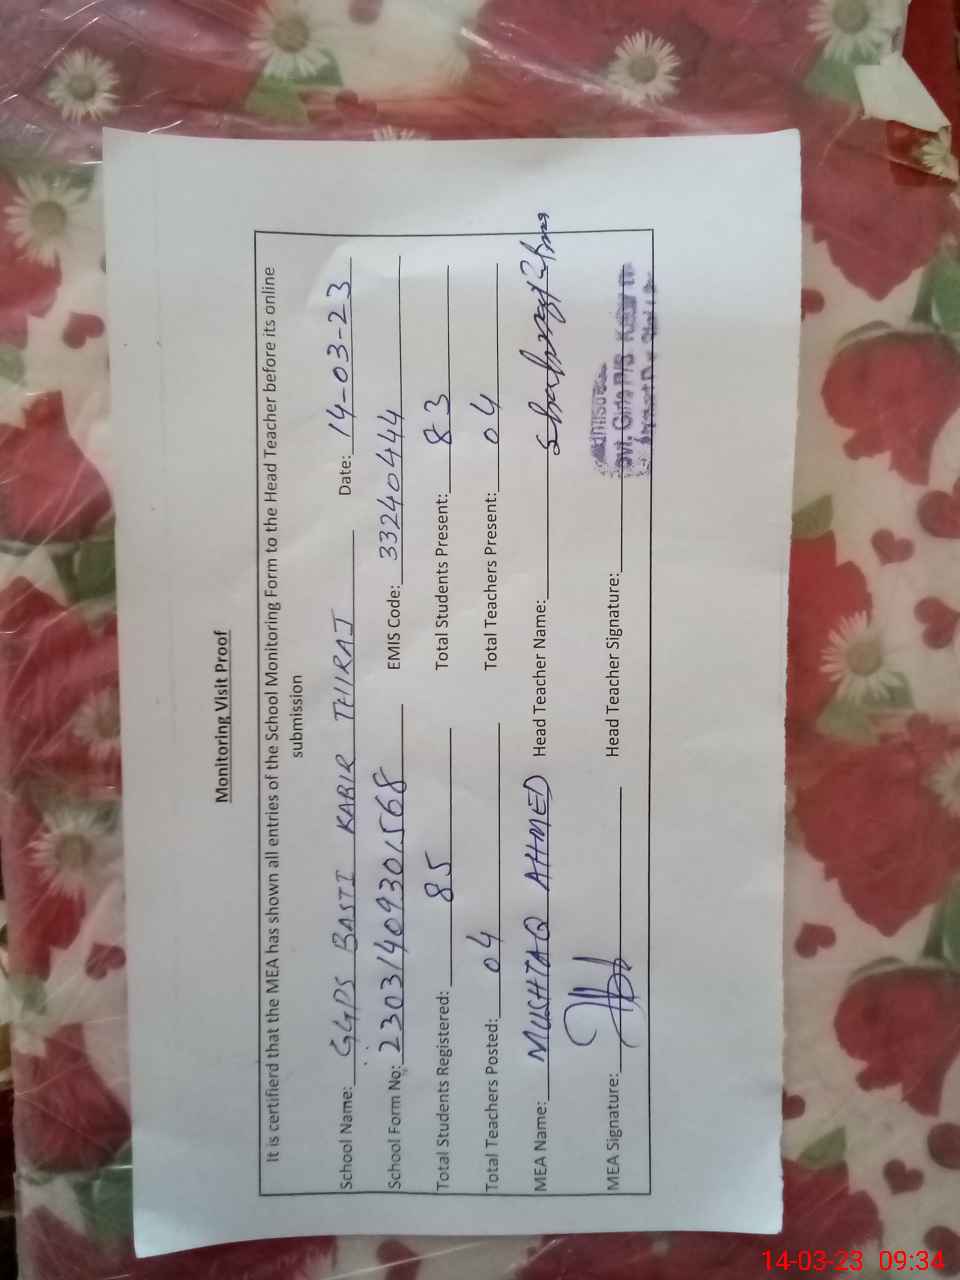 Monitoring Visit Proof
It is certifierd that the MEA has shown all entries of the School Monitoring Form to the Head Teacher before its online
submission
School Name: GGPS BASTI KABIR THIRAJ Date: 14-03-23
School Form No: 23031409301568 EMIS Code: 33240444
Total Students Registered: 85 Total Students Present: 83
Total Teachers Posted: 04 Total Teachers Present: 04
MEA Name: MUSHTAQ AHMED Head Teacher Name:
MEA Signature: Head Teacher Signature:
Girls P/S
14-03-23 09:34